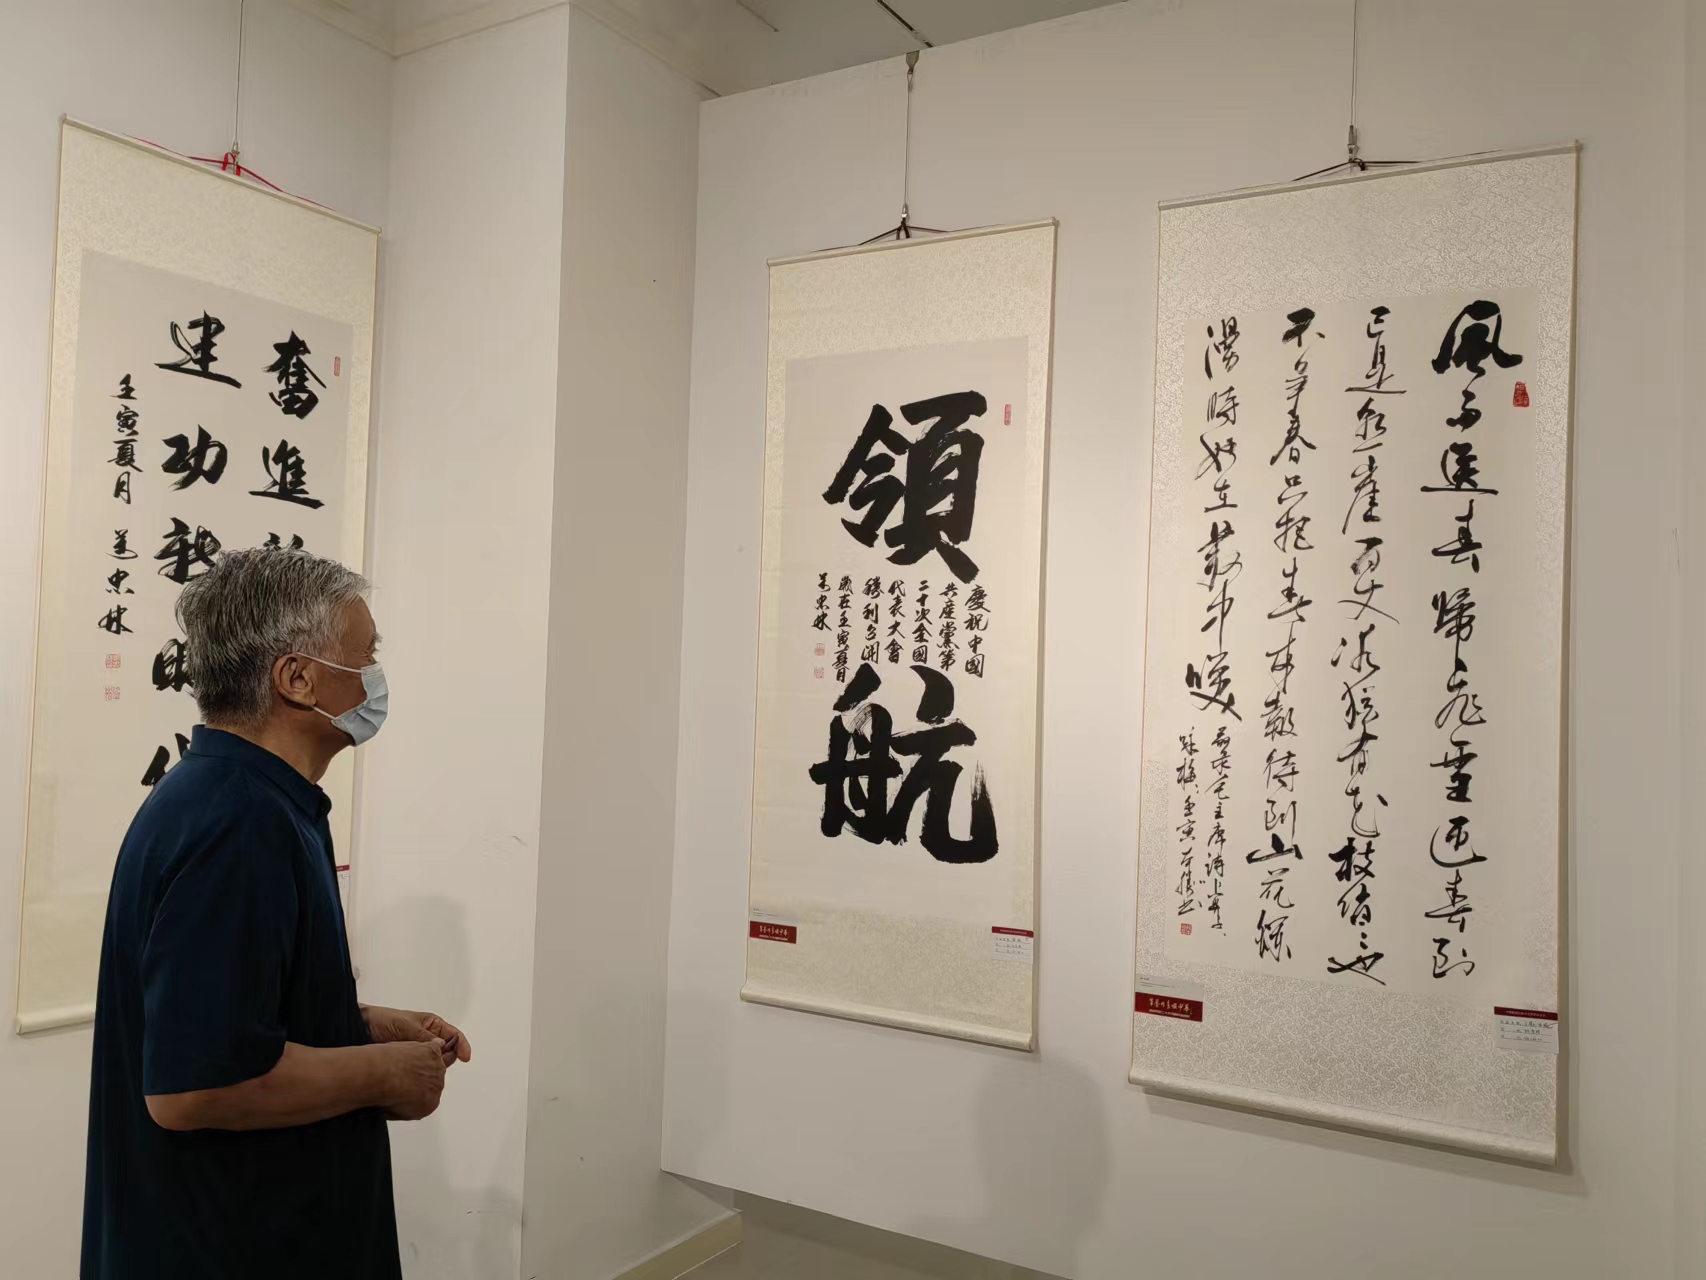 奮進
建功新時代
壬寅夏月 忠林
領航
慶祝中國
共産黨第
二十次全國
代表大會
勝利召開
歲在壬寅夏月
忠林
風雨送春歸飛雪迎春到
已是懸崖百丈冰猶有花枝俏〻也
不爭春只把春來報待到山花爛
漫時她在叢中笑
毛主席詩卜算子
咏梅 壬寅 书